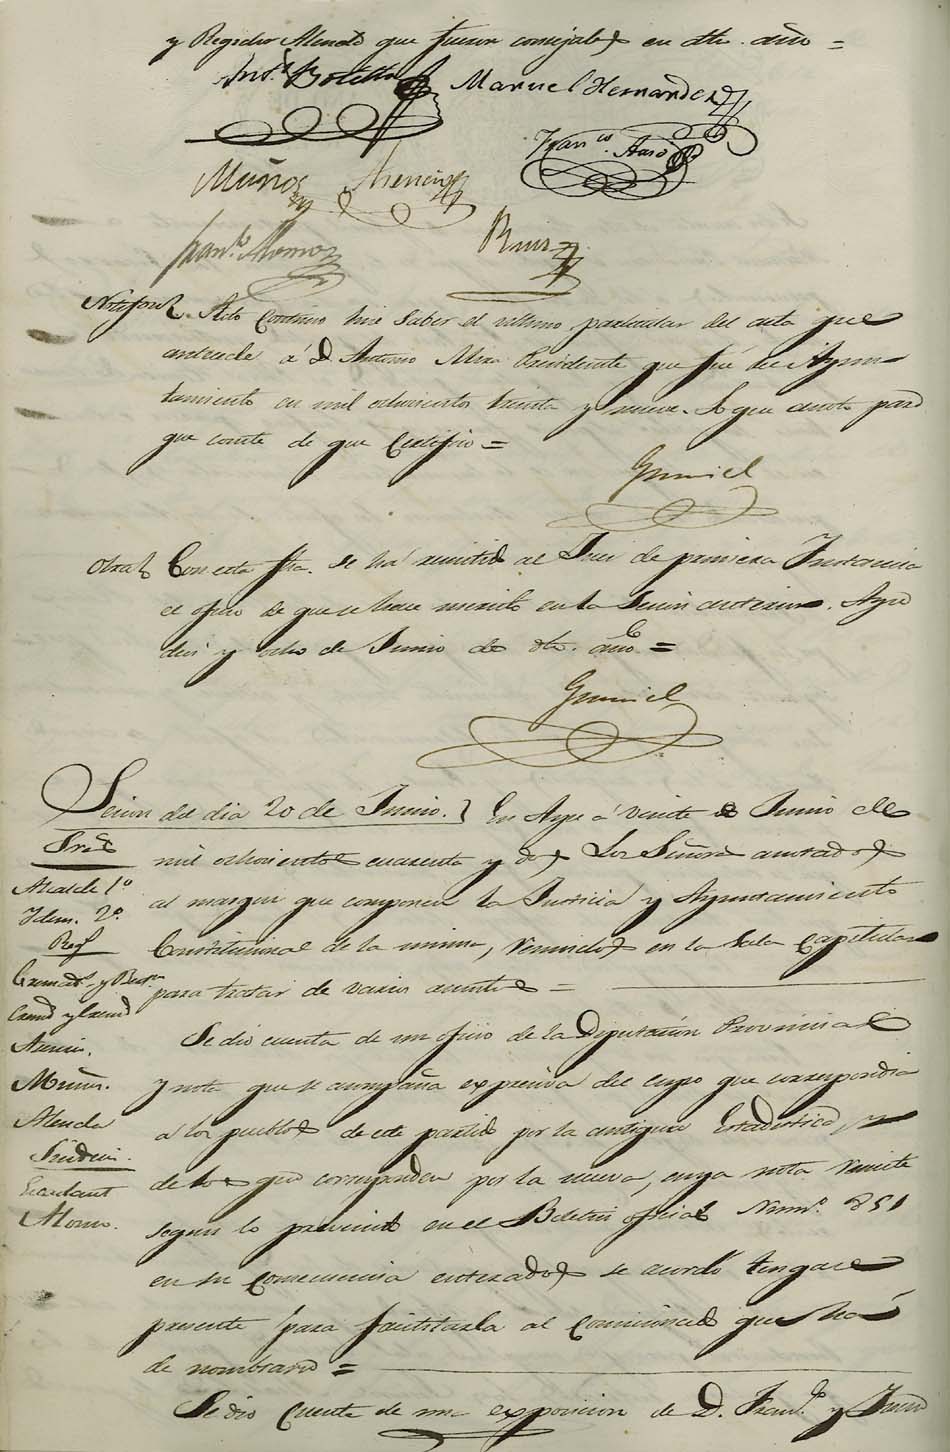 y Regidor que fueron concejales en dho. año =
Anto. Botella Manuel Hernandez
Franco. Haro
Muños Asencio
Franco. Alonso Ruiz
Acto continuo hice saber el ultimo particular del acta que
antecede á D. Antonio Mira Presidente que fué de Ayun-
tamiento en mil ochocientos treinta y nueve. Lo que anoto para
que conste de que Certifico =
Gumiel
Otra Con esta fha. se há remitido al Juez de primera Instancia
el oficio de que se hace merito en la Secion anterior. Aspe
diez y ocho de Junio de dho. año =
Gumiel
Secion del dia 20 de Junio. En Aspe á veinte de Junio de
Sres.
mil ochocientos cuarenta y dos Los Señores anotados
Alcalde 1º
al margen que componen la Justicia y Ayuntamiento
Idem. 2º.
Constitucional de la misma, reunidos en la Sala Capitular
Reg.
para tratar de varios asuntos =
Se dio cuenta de un oficio de la Diputacion Provincial
Asencio.
y nota que se acompaña expresiva del cupo que correspondia
Muños.
á los pueblos de este partido por la antigua Estadistica, y
de los que corresponden por la nueva, cuya nota remite
Sindicos.
segun lo prevenido en el Boletin oficial Numº. 851
Alonso.
en su consecuencia enterados se acordó tengase
presente para facilitarla al comicionado que há
de nombrarse =
Se dio cuenta de una exposicion de D. Franco. y Juan